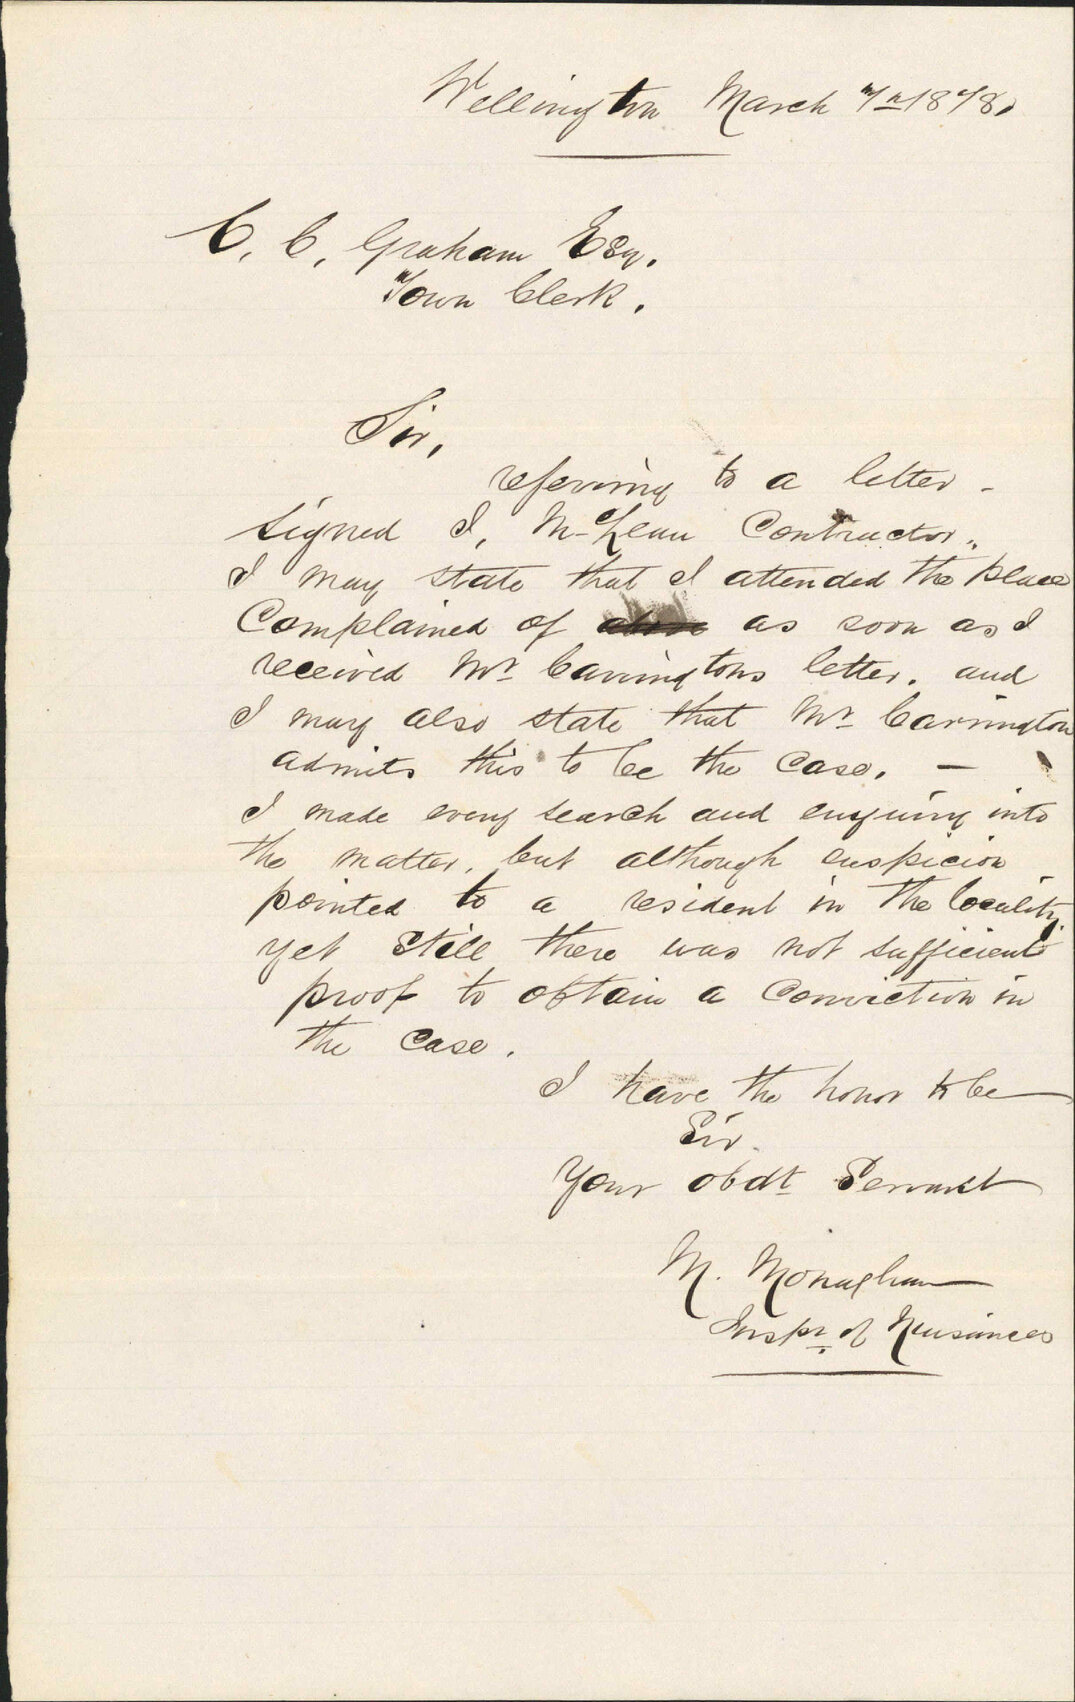 Wellington March 7th 1878.
C. C. Graham Esq.
Town Clerk.
Sir,
referring to a letter -
signed I, McLean Contractor.
I may state that I attended the place
Complained of above as soon as I
received Mr Carringtons letter. and
I may also state that Mr Carrington
admits this to be the case. —
I made every search and enquiry into
the matter, but although suspicion
pointed to a resident in the locality
yet still there was not sufficient
proof to obtain a conviction in
the case.
I have the honor to be
Sir.
Your obdt Servant
M. Monaghan
Inspr of Nuisances